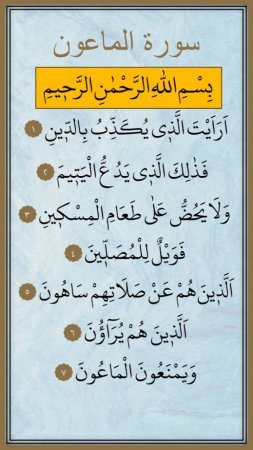 سورة الماعون
بِسْمِ اللهِ الرَّحْمٰنِ الرَّحٖيمِ
اَرَاَيْتَ الَّذٖى يُكَذِّبُ بِالدّٖينِ ١
فَذٰلِكَ الَّذٖى يَدُعُّ الْيَتٖيمَ ٢
وَلَا يَحُضُّ عَلٰى طَعَامِ الْمِسْكٖينِ ٣
فَوَيْلٌ لِلْمُصَلّٖينَ ٤
اَلَّذٖينَ هُمْ عَنْ صَلَاتِهِمْ سَاهُونَ ٥
اَلَّذٖينَ هُمْ يُرَآؤُنَ ٦
وَيَمْنَعُونَ الْمَاعُونَ ٧